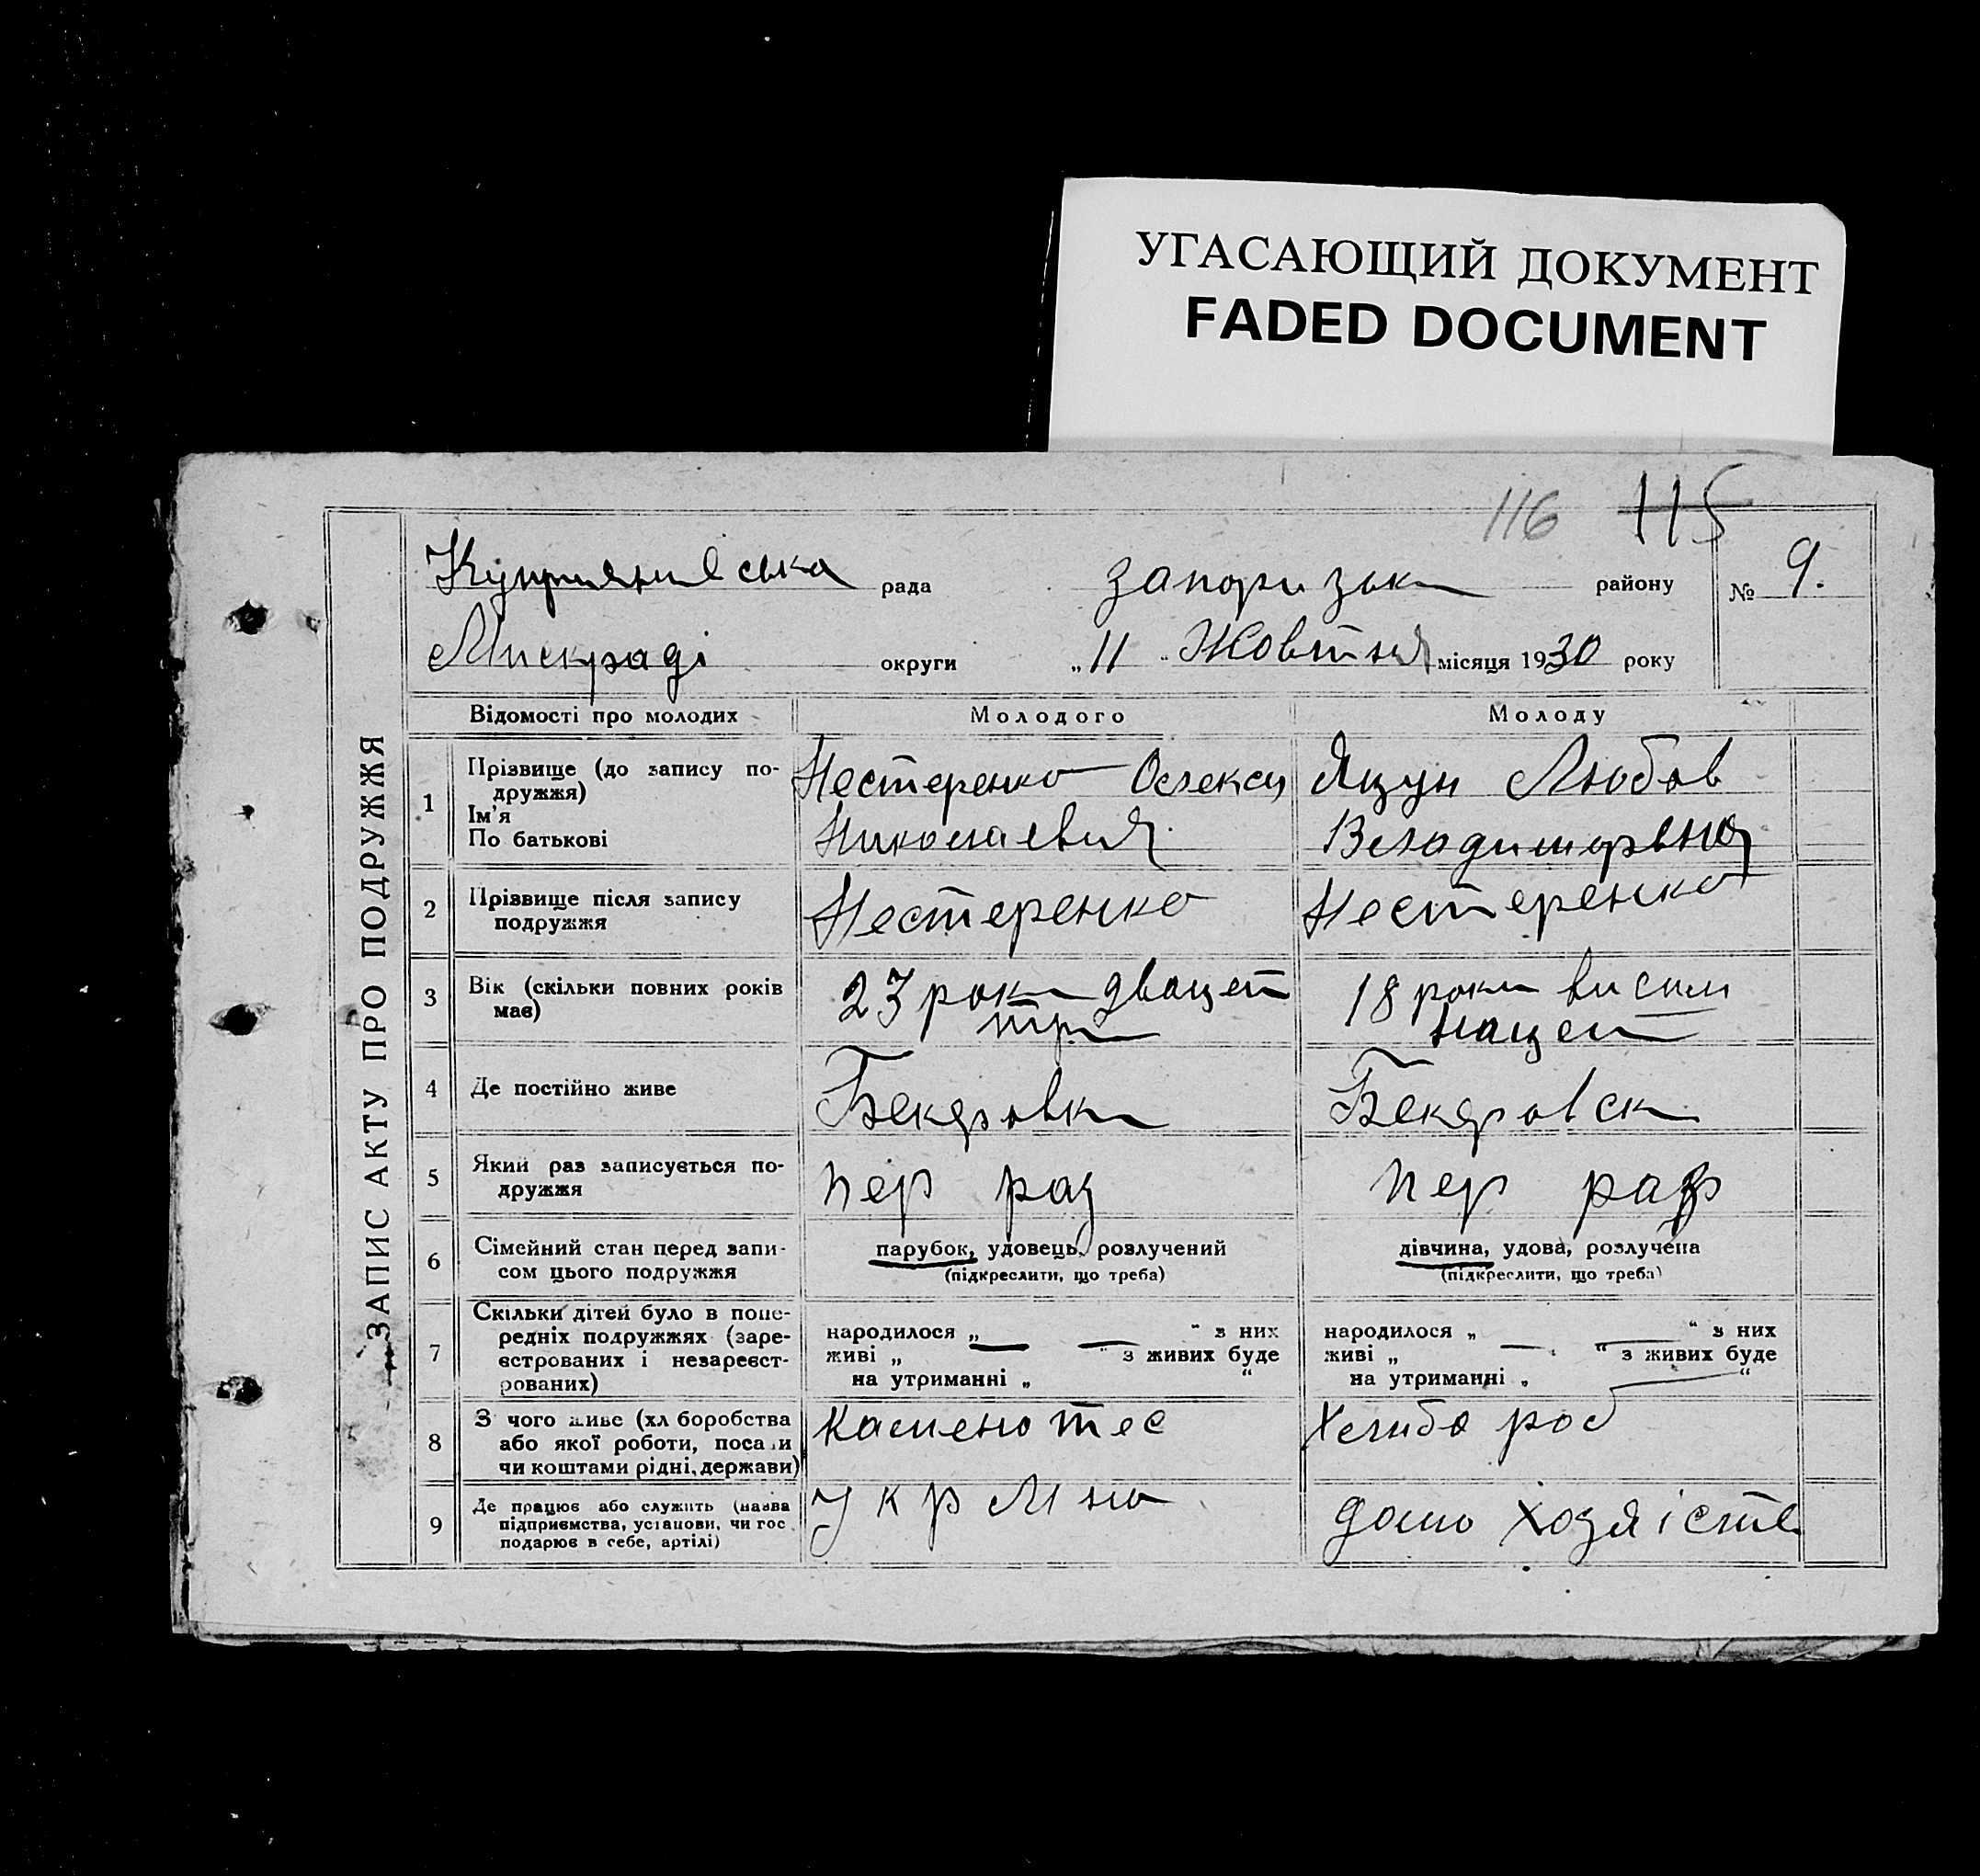 УГАСАЮЩИЙ ДОКУМЕНТ
FADED DOCUMENT
116 115
ЗАПИС АКТУ ПРО ПОДРУЖЖЯ
Куприянивська рада Запоризьк району № 9.
Мискраді округи „11" Жовтня місяця 1930 року
Відомості про молодих Молодого Молоду
1 Прізвище (до запису по-
дружжя)
Ім'я
По батькові
Нестеренко Олекси
Николаевич
Яцун Любов
Володимировна
2 Прізвище після запису
подружжя
Нестеренко
Нестеренко
3 Вік (скільки повних років
має)
23 роки двацет
три
18 роки висим
нацет
4 Де постійно живе
Бекаровка
Бекаровск
5 Який раз записується по-
дружжя
пер раз
пер раз
6 Сімейний стан перед запи-
сом цього подружжя
парубок, удовець, розлучений
(підкреслити, що треба)
дівчина, удова, розлучена
(підкреслити, що треба)
7 Скільки дітей було в попе-
редніх подружжях (заре-
єстрованих і незареєст-
рованих)
народилося „ — " з них
живі „ " з живих буде
на утриманні „ "
народилося „ — " з них
живі „ " з живих буде
на утриманні „ "
8 З чого живе (хліборобства
або якої роботи, посади
чи коштами рідні, держави)
каменотес
Хлибороб
9 Де працює або служить (назва
підприємства, установи, чи гос
подарює в себе, артілі)
домо хозяіств